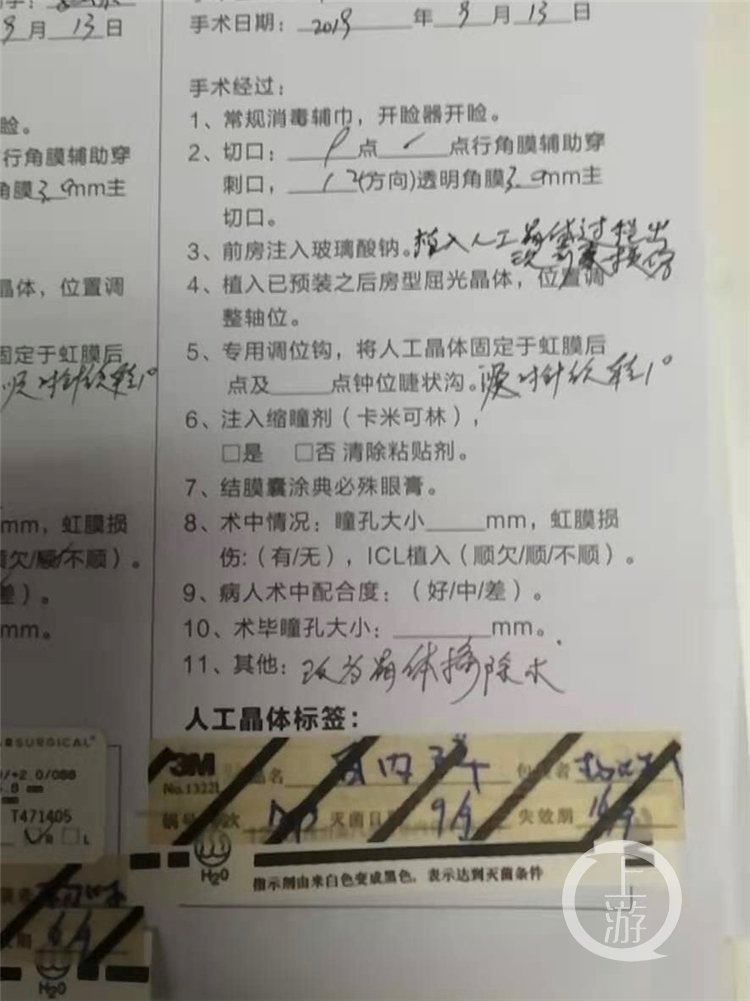 9月13日
手术日期：2019年9月13日
手术经过：
1、常规消毒辅巾，开睑器开睑。
睑。
2、切口：点点行角膜辅助穿
行角膜辅助穿
刺口，12(方向)透明角膜3.0mm主
角膜3.0mm主
切口。
3、前房注入玻璃酸钠。植入人工晶体过程出
4、植入已预装之后房型屈光晶体，位置调
晶体，位置调
整轴位。
5、专用调位钩，将人工晶体固定于虹膜后
固定于虹膜后
点及____点钟位睫状沟。
6、注入缩瞳剂（卡米可林），
□是 □否 清除粘贴剂。
7、结膜囊涂典必殊眼膏。
8、术中情况：瞳孔大小____mm，虹膜损
mm，虹膜损
伤:（有/无），ICL植入（顺欠/顺/不顺）。
顺欠/顺/不顺）。
9、病人术中配合度：（好/中/差）。
差）。
10、术毕瞳孔大小：______mm。
mm。
11、其他：改为晶体摘除术
人工晶体标签：
SURGICAL
T471405
R □L
3M
No.1322L
品名
包装者
锅号
次
灭菌日期
9/9
失效期
H2O
指示剂由米白色变成黑色，表示达到灭菌条件
H2O
上游